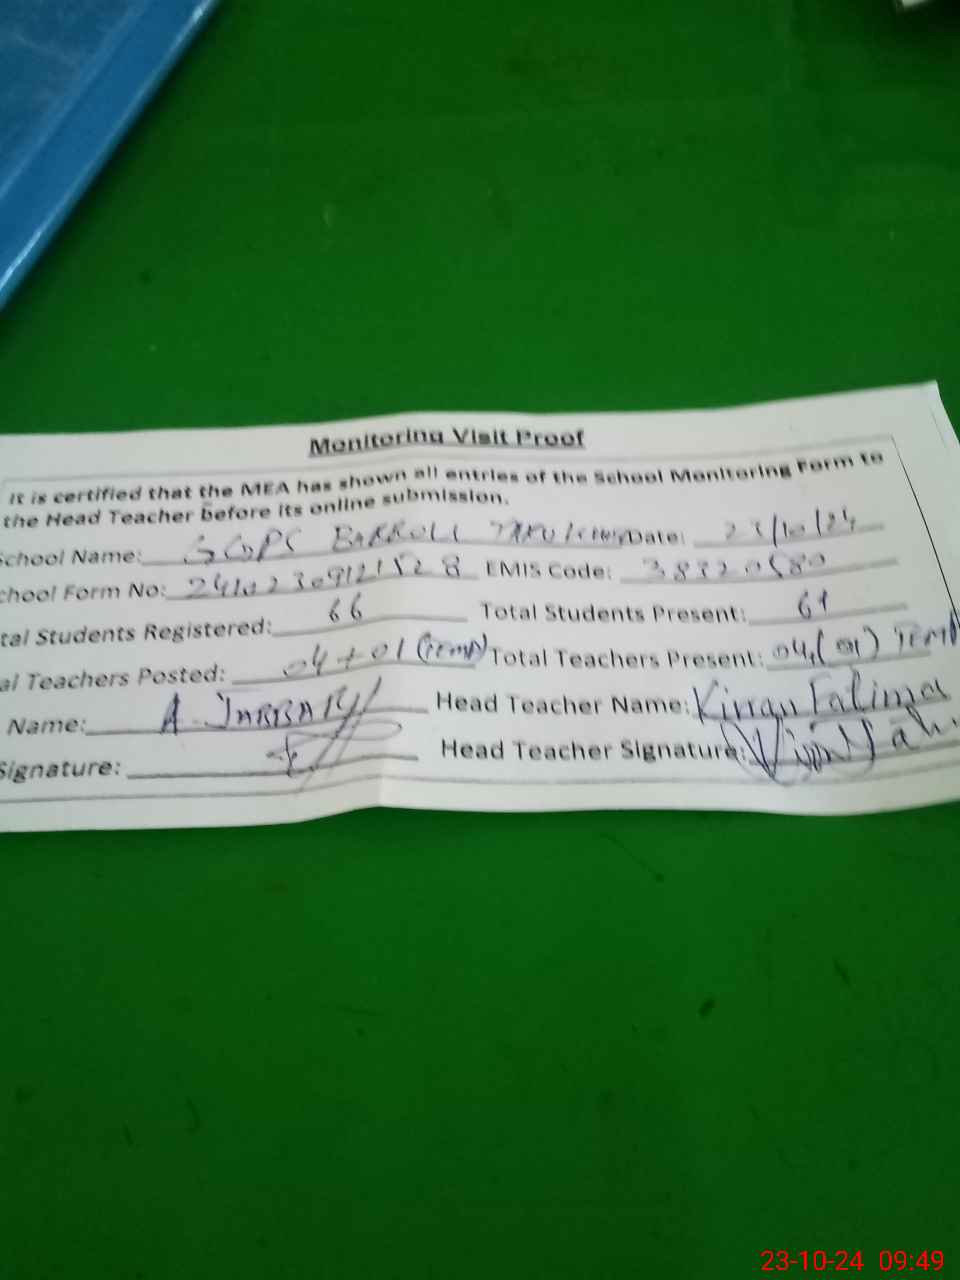 Monitoring Visit Proof
It is certified that the MEA has shown all entries of the School Monitoring Form to
the Head Teacher before its online submission.
School Name: GGPS Date: 23/10/24
chool Form No: EMIS Code: 38320580
tal Students Registered: 66 Total Students Present: 61
al Teachers Posted: 04 + 01 (Temp) Total Teachers Present: 04, (01) Temp
Name: A. JABBAR Head Teacher Name: Kirran Fatima
Signature: Head Teacher Signature:
23-10-24 09:49